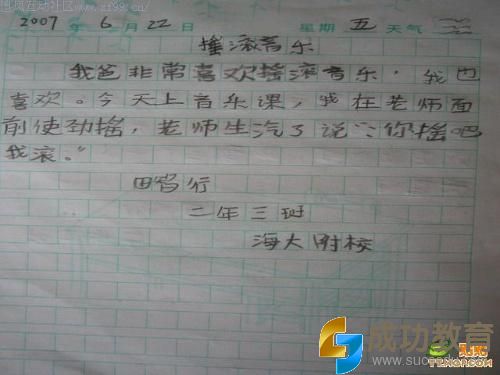 搜风互动社区www.zf99.cn
2007年6月22日 星期五天气
摇滚音乐
我爸非常喜欢摇滚音乐，我也
喜欢。今天上音乐课，我在老师面
前使劲摇，老师生汽了说：“你摇吧
我滚。”
田
行
二年三班
海大附校
成功教育